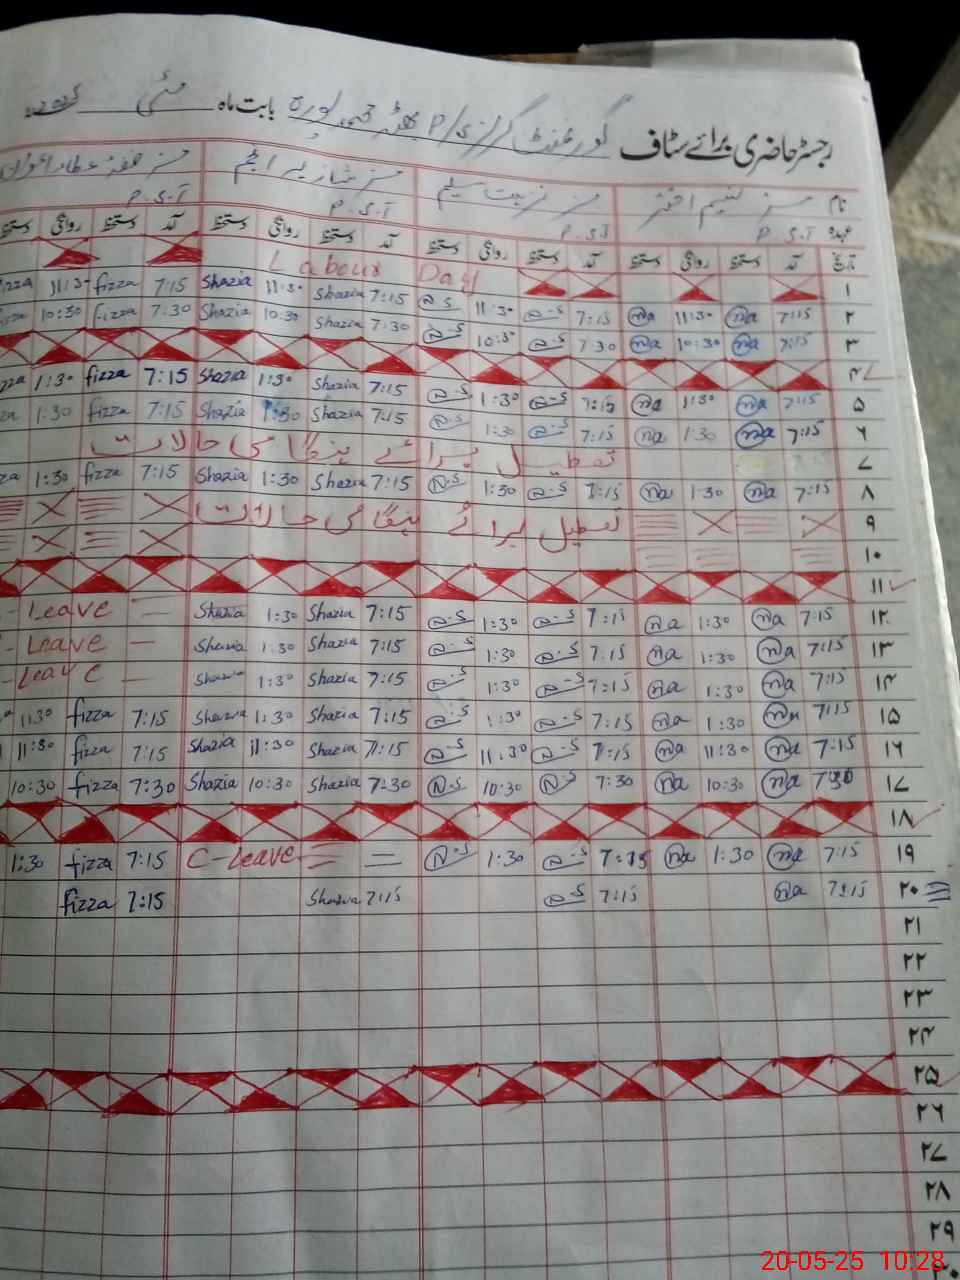 رجسٹر حاضری برائے سٹاف گورنمنٹ گرلز P/S بابت ماہ مئی 2025
نام مسز نسیم اختر مسز نزہت سلیم مسز شازیہ انجم مسز فضہ
عہدہ P.S.T P.S.T P.S.T P.S.T
تاریخ آمد دستخط روانگی دستخط آمد دستخط روانگی دستخط آمد دستخط روانگی دستخط آمد دستخط روانگی دستخط
۱ Labour Day
۲ 7:15 na 11:30 na 7:15 N.S 11:30 N.S 7:15 Shazia 11:30 Shazia 7:15 fizza 11:30 fizza
۳ 7:15 na 10:30 na 7:30 N.S 10:30 N.S 7:30 Shazia 10:30 Shazia 7:30 fizza 10:30
۴
۵ 7:15 na 1:30 na 7:15 N.S 1:30 N.S 7:15 Shazia 1:30 Shazia 7:15 fizza 1:30 zza
۶ 7:15 na 1:30 na 7:15 N.S 1:30 N.S 7:15 Shazia 1:30 Shazia 7:15 fizza 1:30 za
۷ تعطیل برائے ہنگامی حالات
۸ 7:15 na 1:30 na 7:15 N.S 1:30 N.S 7:15 Shazia 1:30 Shazia 7:15 fizza 1:30 za
۹ تعطیل برائے ہنگامی حالات
۱۰
۱۱
۱۲ 7:15 na 1:30 na 7:15 N.S 1:30 N.S 7:15 Shazia 1:30 Shazia Leave
۱۳ 7:15 na 1:30 na 7:15 N.S 1:30 N.S 7:15 Shazia 1:30 Shazia Leave
۱۴ 7:15 na 1:30 na 7:15 N.S 1:30 N.S 7:15 Shazia 1:30 Shazia Leave
۱۵ 7:15 na 1:30 na 7:15 N.S 1:30 N.S 7:15 Shazia 1:30 Shazia 7:15 fizza 1130
۱۶ 7:15 na 11:30 na 7:15 N.S 11:30 N.S 7:15 Shazia 11:30 Shazia 7:15 fizza 11:30
۱۷ 7:30 na 10:30 na 7:30 N.S 10:30 N.S 7:30 Shazia 10:30 Shazia 7:30 fizza 10:30
۱۸
۱۹ 7:15 na 1:30 na 7:15 N.S 1:30 N.S C-Leave 7:15 fizza 1:30
۲۰ 7:15 na 7:15 N.S 7:15 Shazia 7:15 fizza
۲۱
۲۲
۲۳
۲۴
۲۵
۲۶
۲۷
۲۸
۲۹
۳۰
20-05-25 10:28